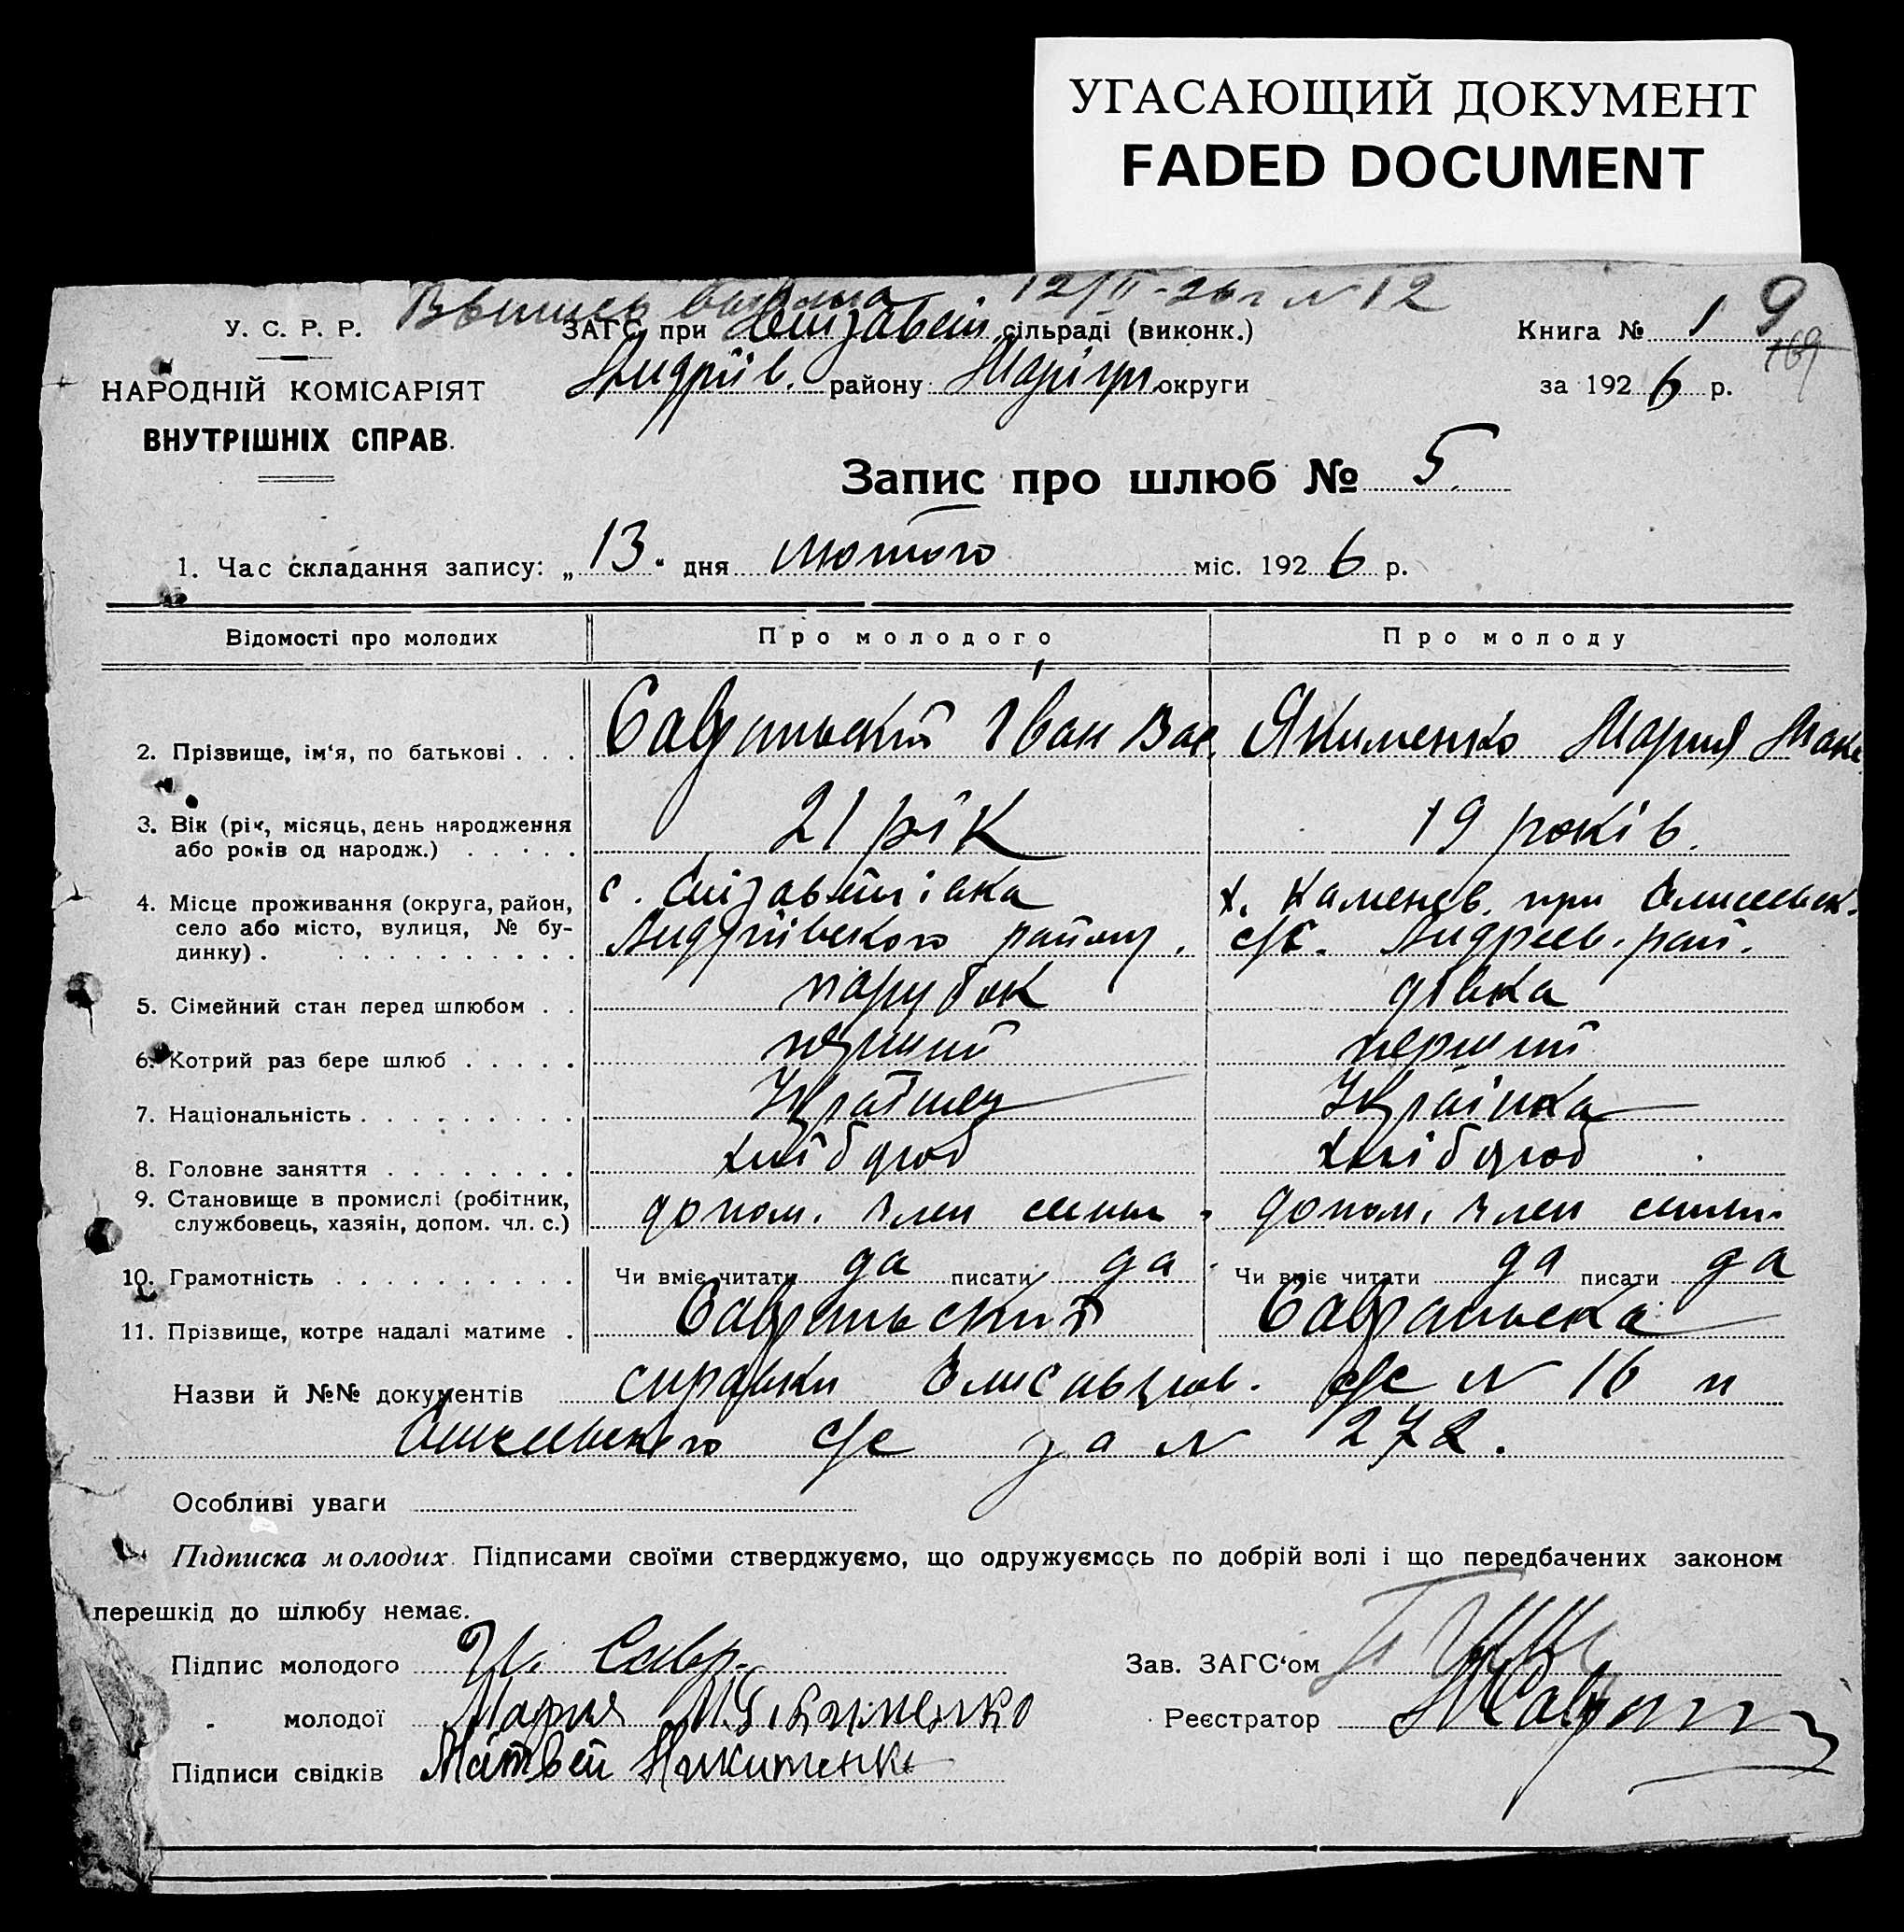 УГАСАЮЩИЙ ДОКУМЕНТ
FADED DOCUMENT
12/II-26 г N 12
9
У. С. Р. Р.
ЗАГС при Єлізавет. сільраді (виконк.)
Книга № 1
169
НАРОДНІЙ КОМІСАРІЯТ
ВНУТРІШНІХ СПРАВ.
Андріїв. району Маріуп. округи
за 1926 р.
Запис про шлюб № 5.
1. Час складання запису: „13“ дня лютого міс. 1926 р.
Відомості про молодих
Про молодого
Про молоду
2. Прізвище, ім‘я, по батькові . . .
Савранський Іван Вас.
Якименко Мария Мак.
3. Вік (рік, місяць, день народження
або років од народж.) . . . . .
21 рік
19 років.
4. Місце проживання (округа, район,
село або місто, вулиця, № бу-
динку) . . . . . . . . . . .
с. Єлізаветівка
Андріївского району.
х. Каменов. при Елисеевск.
с/с. Андреев. рай.
5. Сімейний стан перед шлюбом . .
парубок
дівка
6. Котрий раз бере шлюб . . . . .
перший
перший
7. Національність . . . . . . . . .
Українец
Українка
8. Головне заняття . . . . . . . .
хлібороб
хлібороб
9. Становище в промислі (робітник,
службовець, хазяін, допом. чл. с.)
допом. член семьи.
допом. член семьи.
10. Грамотність . . . . . . . . . . .
Чи вміє читати да писати да
Чи вміє читати да писати да
11. Прізвище, котре надалі матиме .
Савранський
Савранська
Назви й №№ документів справки Елисаветов. с/с N 16 и
Елисеевского с/с за N 272.
Особливі уваги
Підписка молодих. Підписами своїми стверджуємо, що одружуємось по добрій волі і що передбачених законом
перешкід до шлюбу немає.
Підпис молодого И. Савр.
Зав. ЗАГС‘ом
молодої Мария М. Якименко
Реєстратор
Підписи свідків Матвей Никитенко